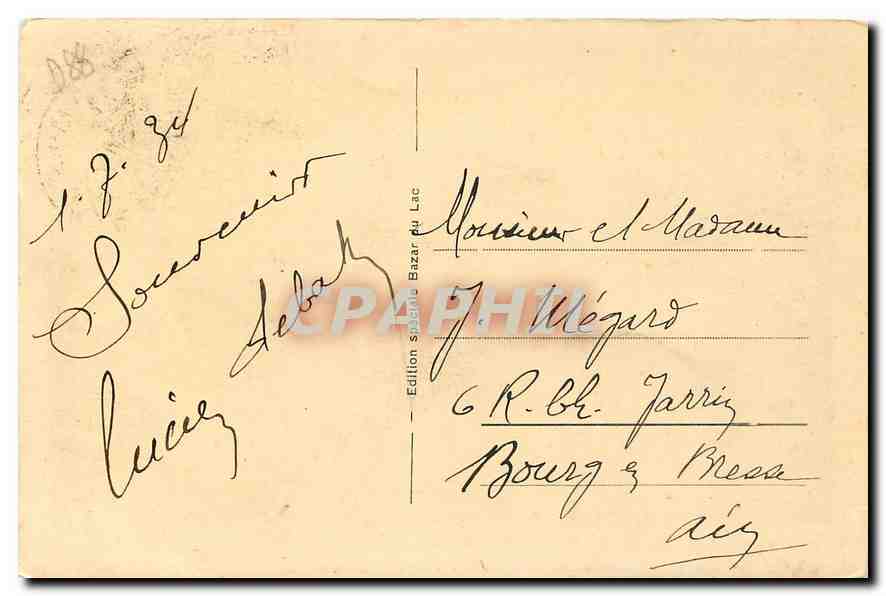 D88
1.7.34
Souvenir
Lucien
Edition spéciale Bazar du Lac
CPAPHIL
Monsieur et Madame
J. Mégard
6 R. Ch. Jarrin
Bourg en Bresse
Ain